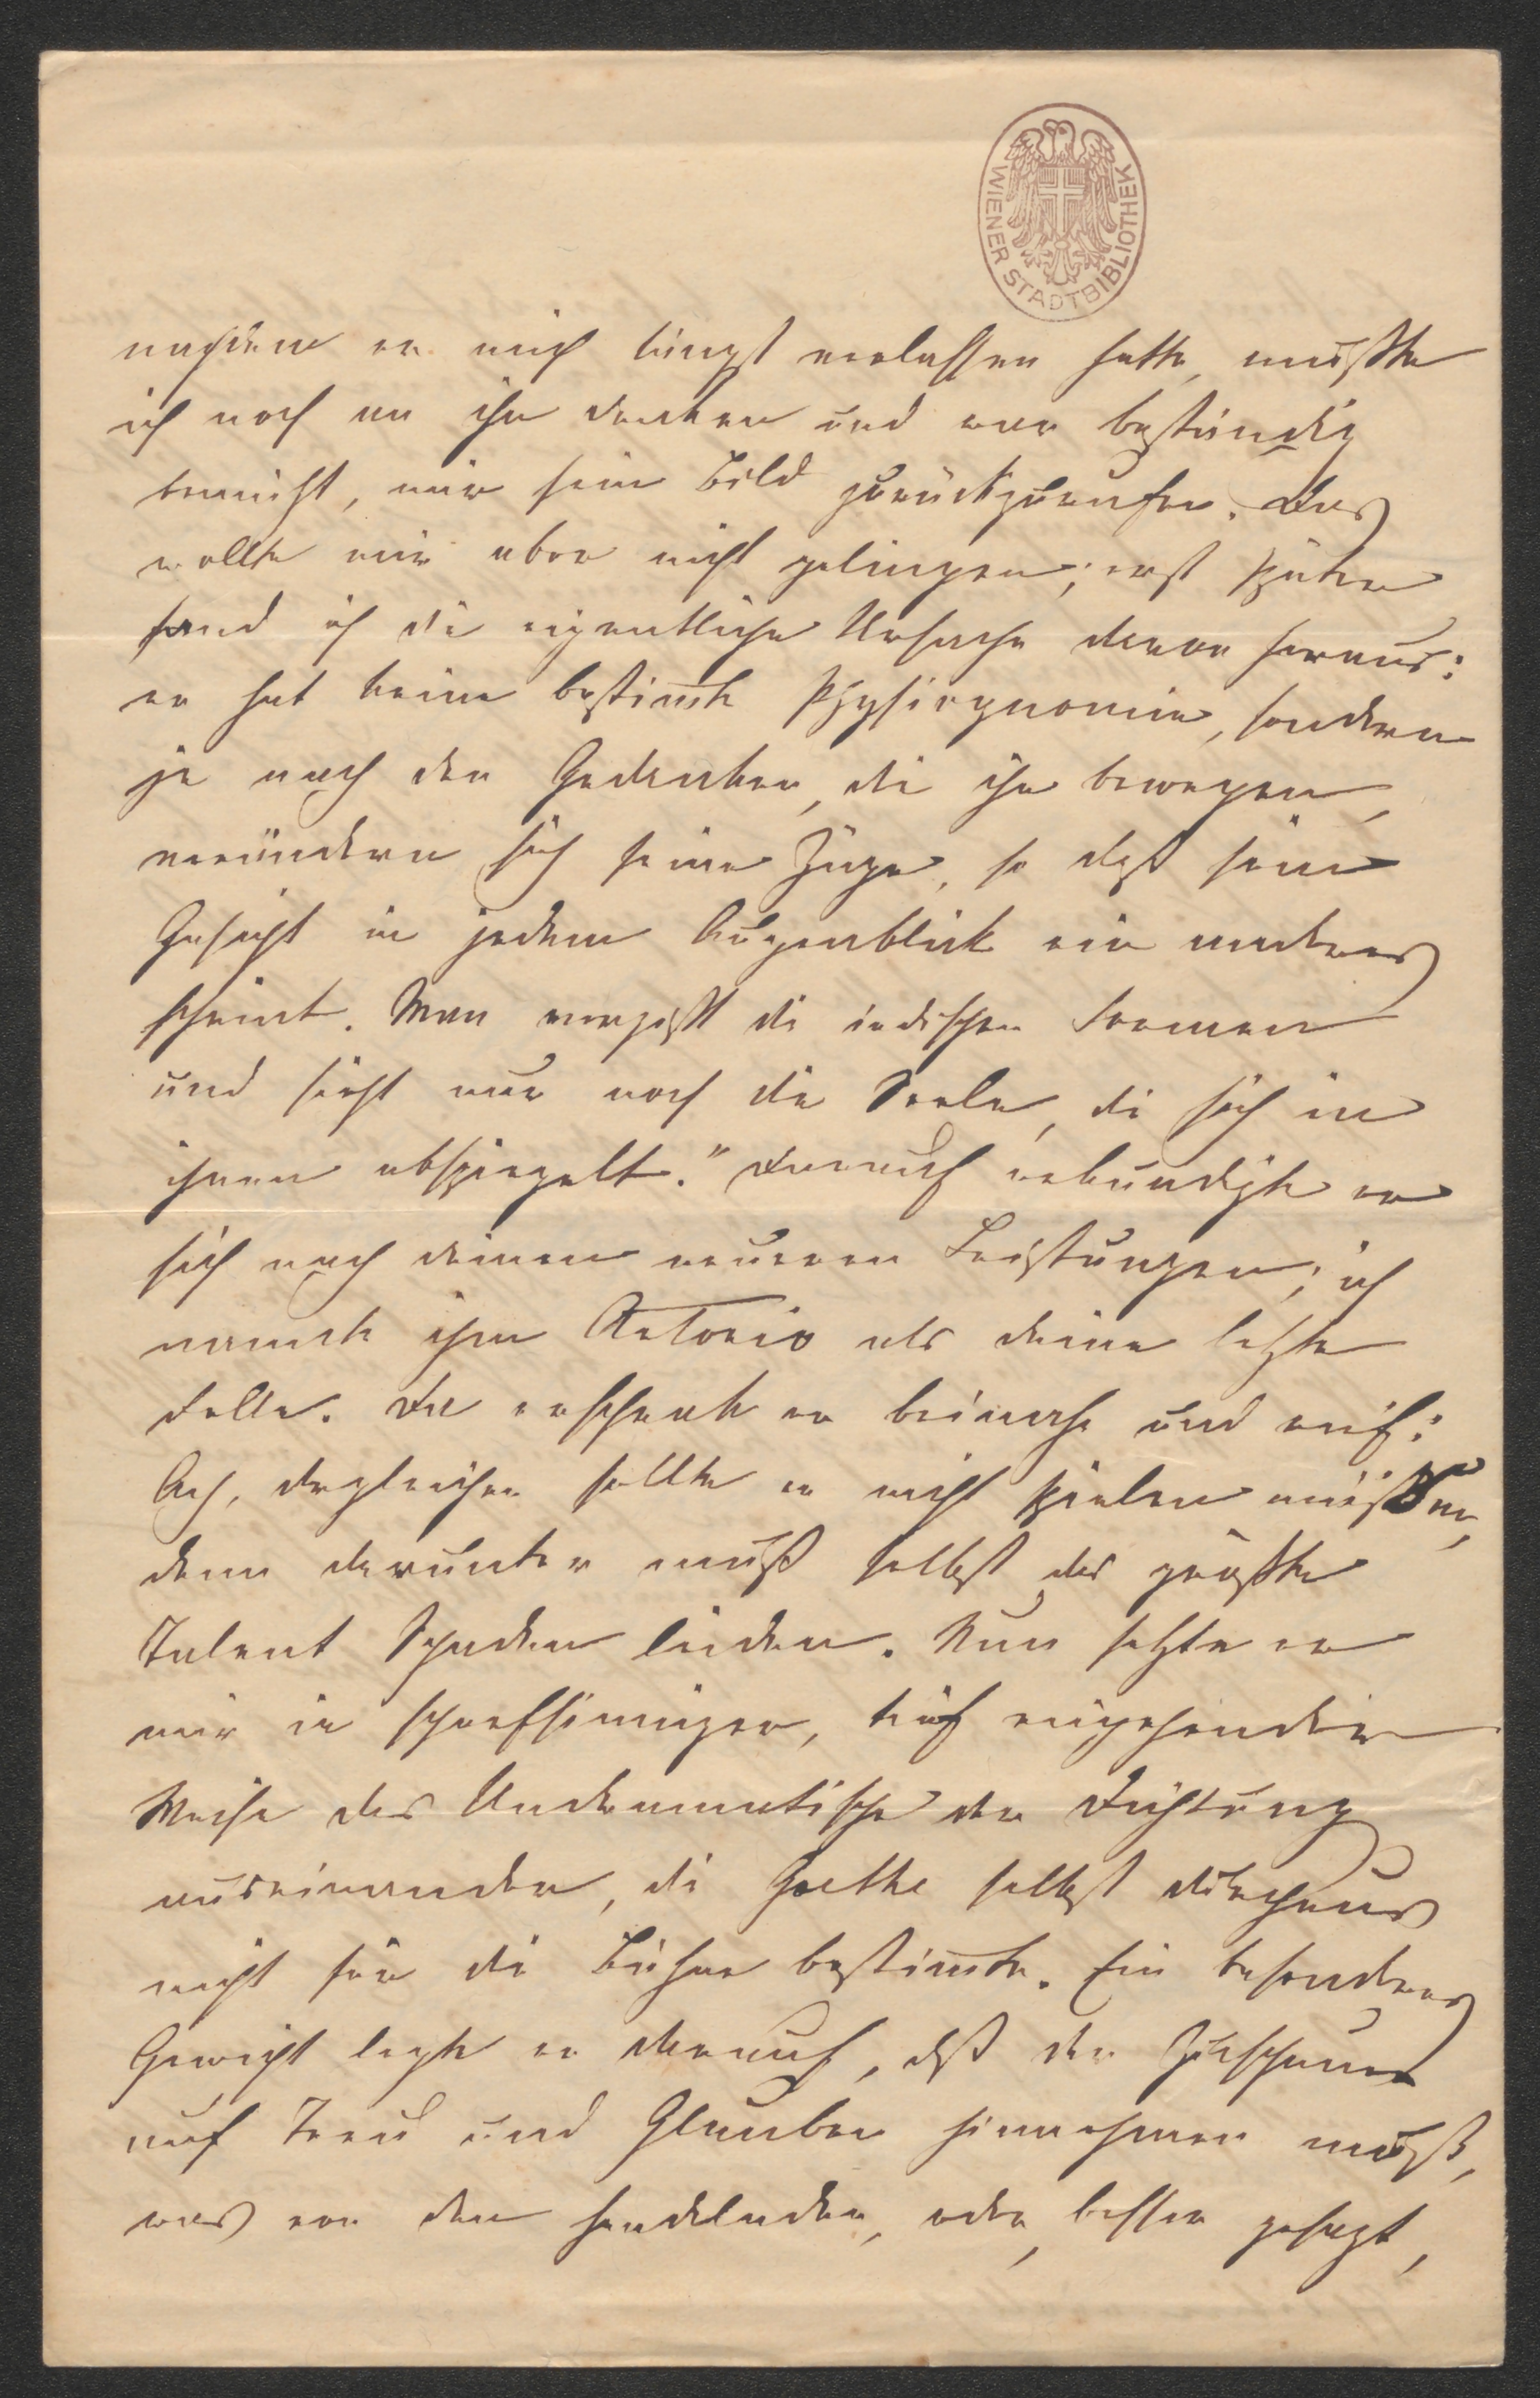 WIENER STADTBIBLIOTHEK
nachdem er mich längst verlassen hatte, mußte
ich noch an ihn denken und war beständig
bemüht, mir sein Bild zurückzurufen. Das
wollte mir aber nicht gelingen; erst später
fand ich die eigentliche Ursache davon heraus:
er hat keine bestim̅te Physiognomie, sondern
je nach den Gedanken, die ihn bewegen,
verändern sich seine Züge, so daß sein
Gesicht in jedem Augenblick ein anderes
scheint. Man vergißt die irdischen Formen
und sieht nur noch die Seele, die sich in
ihnen abspiegelt." Darauf erkundigte er
sich nach deinen neueren Leistungen; ich
nannte ihm Antonio als deine letzte
Rolle. Da erschrak er beinahe und rief:
Ach, dergleichen sollte er nicht spielen müssen,
denn darunter muß selbst das größte
Talent Schaden leiden. Nun setzte er
mir in scharfsinniger, tief eingehender
Weise das Undramatische der Dichtung
auseinander, die Goethe selbst durchaus
nicht für die Bühne bestim̅te. Ein besonderes
Gewicht legte er darauf, daß der Zuschauer
auf Treu und Glauben hinnehmen muß,
was von den handelnden, oder, besser gesagt,